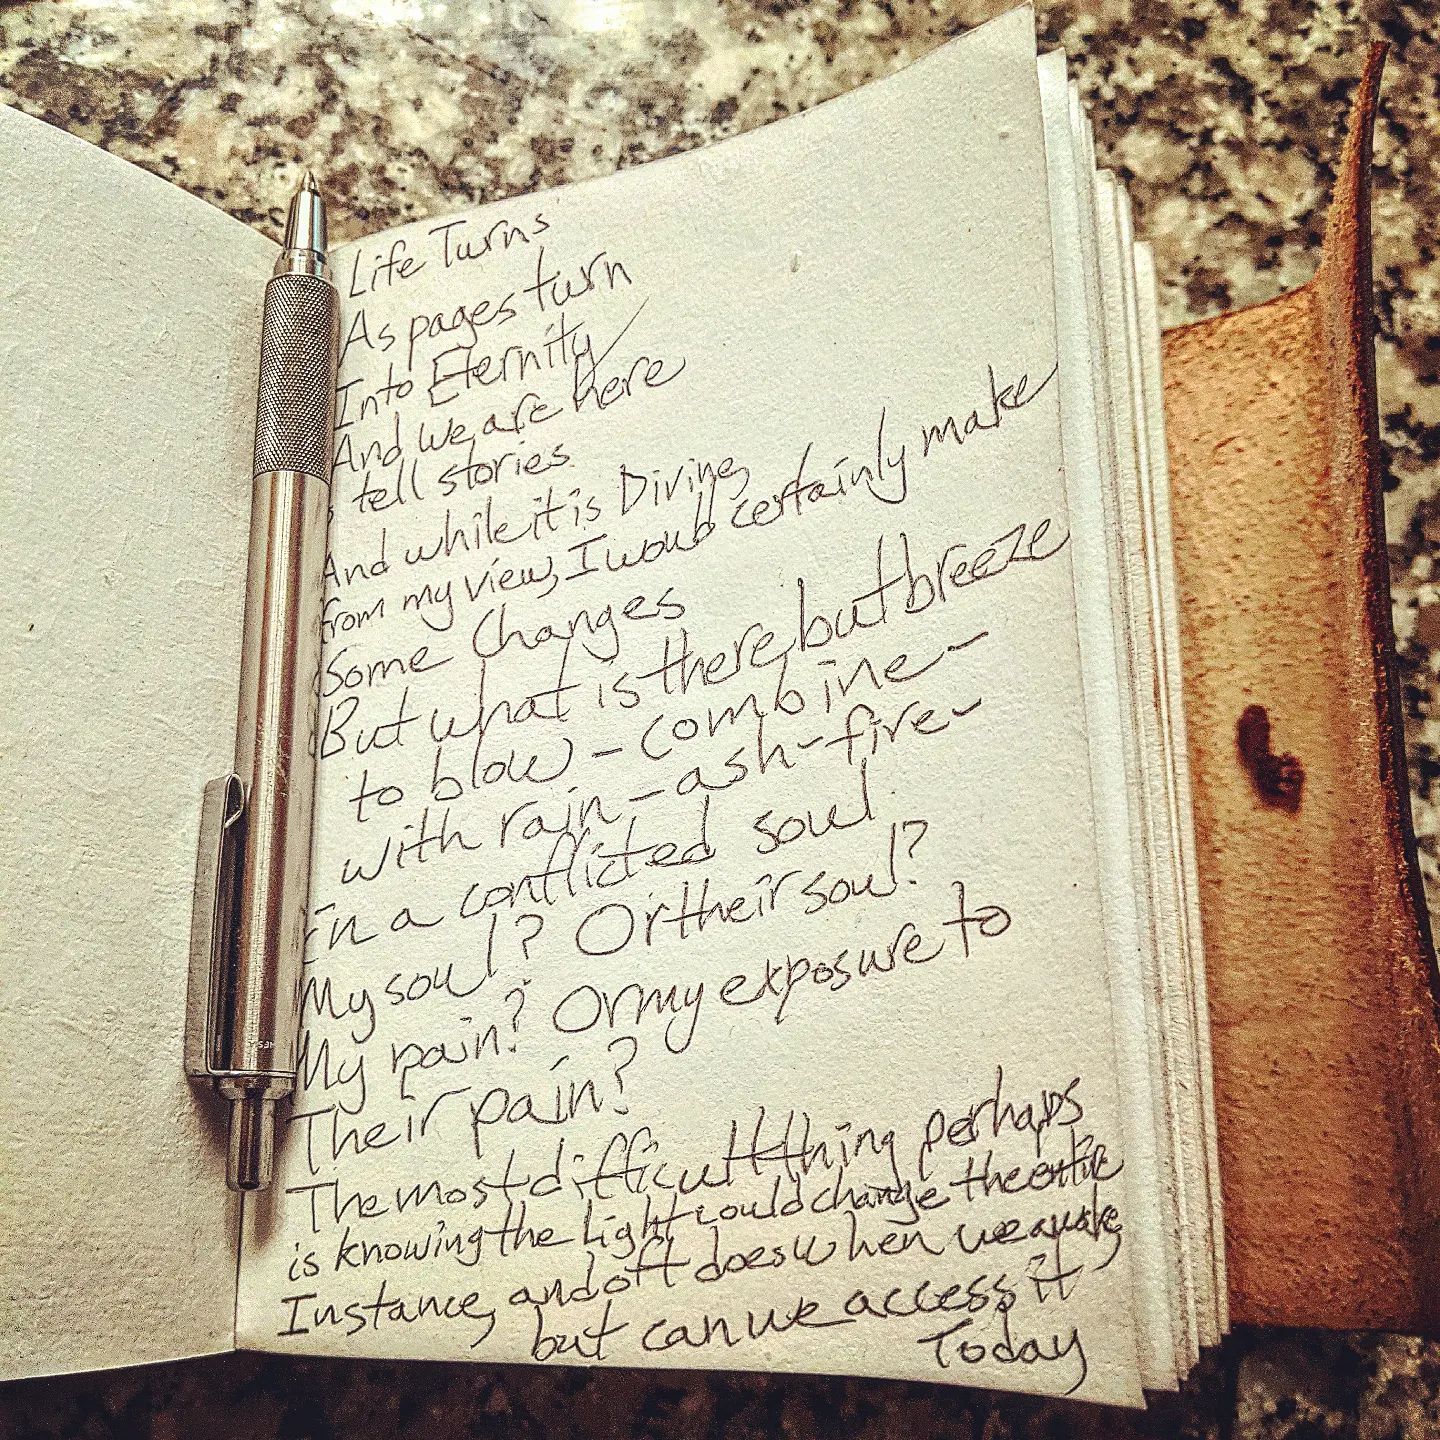 Life Turns
As pages turn
Into Eternity
And we are here
tell stories
And while it is Divine,
from my view, I would certainly make
Some Changes
But what is there but breeze
to blow - combine -
with rain - ash - fire -
In a conflicted soul
My soul? Or their soul?
My pain? Or my exposure to
Their pain?
The most difficult thing perhaps
is knowing the Light could change the entire
Instance, and oft does when we awake,
but can we access it
Today